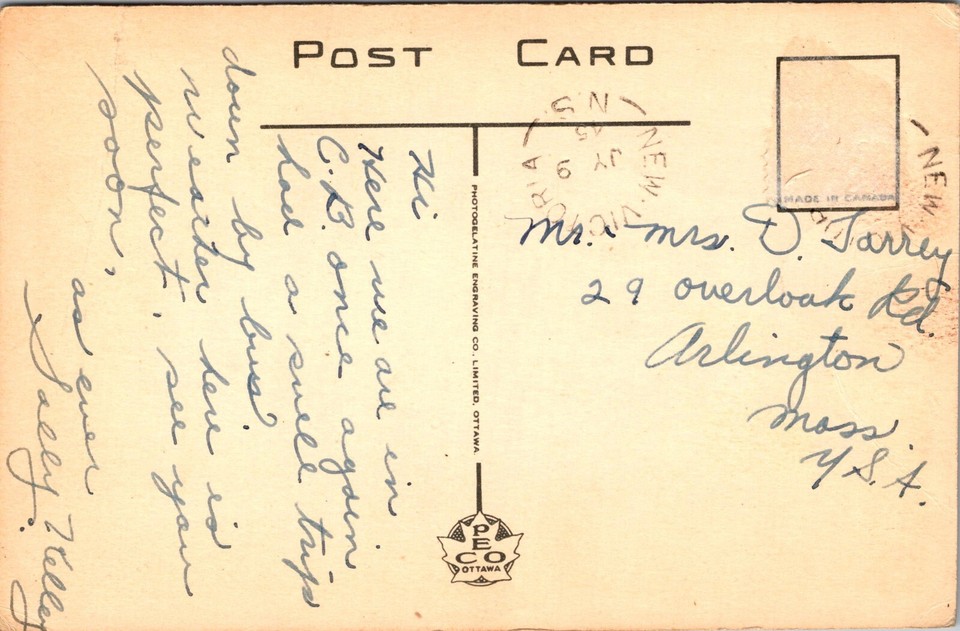 POST CARD
N S
45
JY
9
NEW VICTORIA
NEW
MADE IN CANADA
Hi
Here we are in
C.B. once again
had a swell trip
down by bus
weather here is
perfect. see you
soon,
as ever
Kelley
PHOTOGELATINE ENGRAVING CO. LIMITED, OTTAWA.
PECO
OTTAWA
Mr. & Mrs. D. Torrey
29 overlook Rd.
Arlington
Mass.
U.S.A.